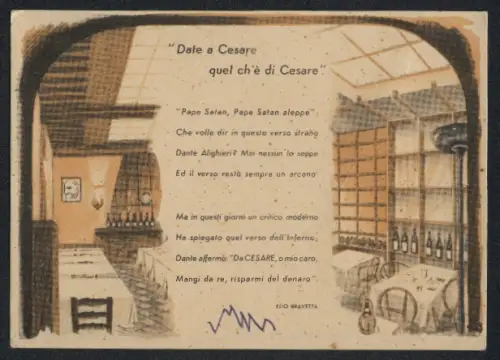 "Date a Cesare
quel ch'è di Cesare".
"Pape Satan, Pape Satan aleppe"
Che volle dir in questo verso strano
Dante Alighieri? Mai nessun lo seppe
Ed il verso restò sempre un arcano
Ma in questi giorni un critico moderno
Ha spiegato quel verso dell'Inferno,
Dante affermò: "Da CESARE, o mio caro,
Mangi da re, risparmi del denaro"
BRAVETTA